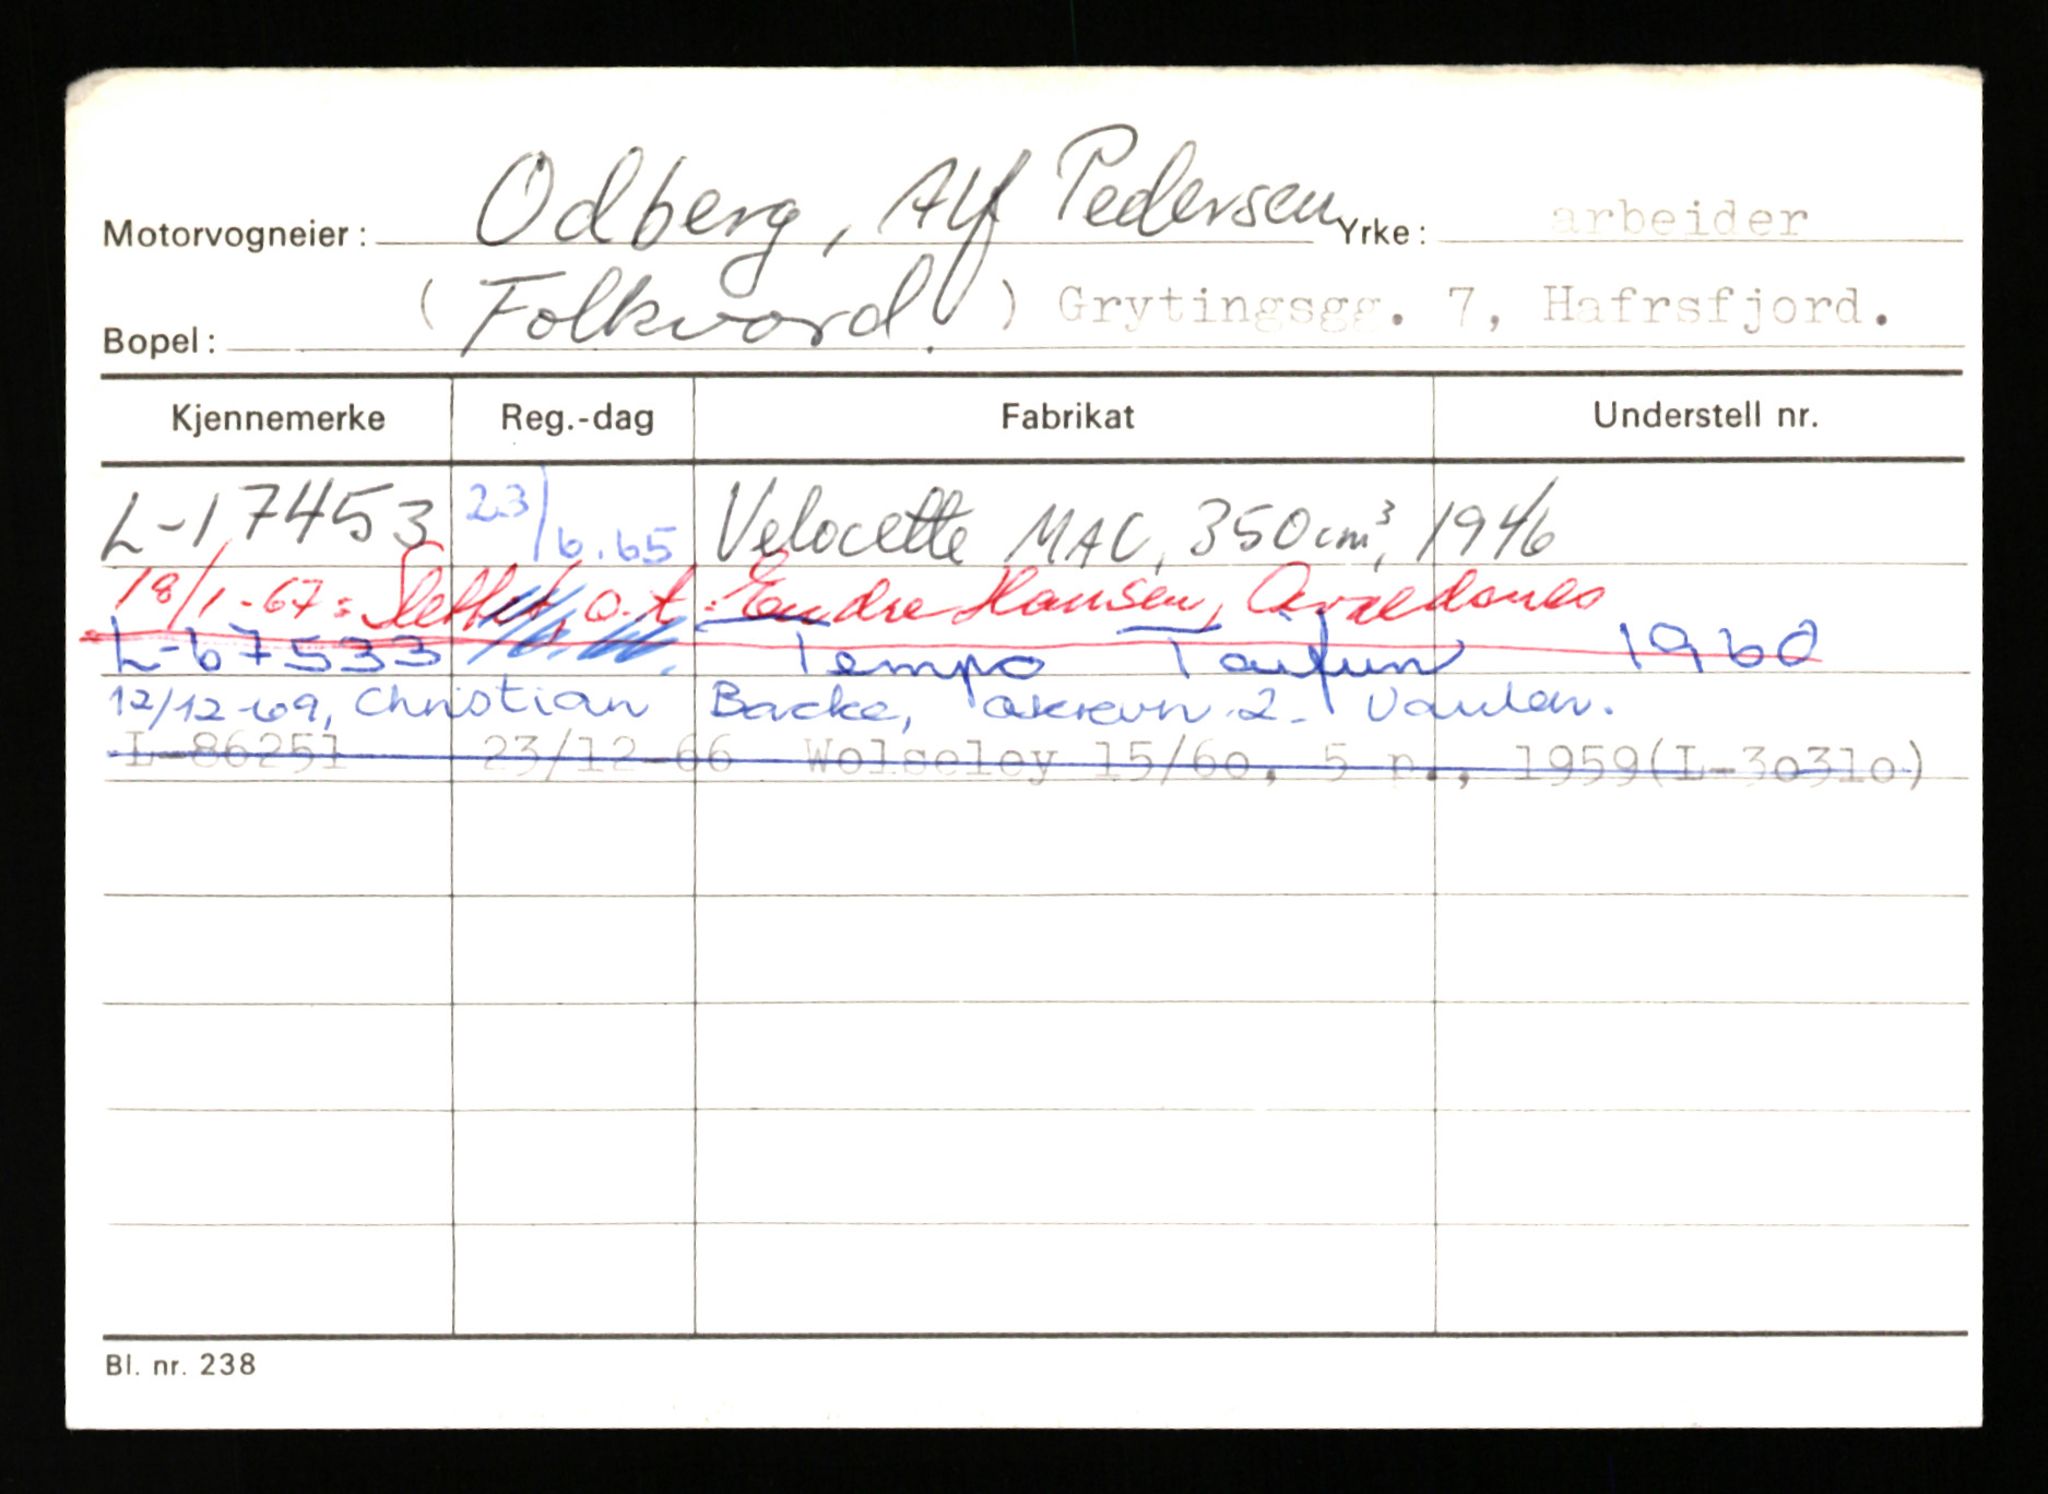 Motorvogneier: Odberg, Alf Pedersen Yrke: arbeider
Bopel: (Folkvord.) Grytingsgg. 7, Hafrsfjord.
Kjennemerke Reg.-dag Fabrikat Understell nr.
L-17453 23/6.65 Velocette MAC, 350cm³, 1946
18/1-67: Slettet, o.t. Endre Hansen, Avaldsnes
L-67533 Tempo Taifun 1960
12/12-69, Christian Backe, 2. Vaulen.
L-86251 23/12-66 Wolseley 15/60, 5 p., 1959(L-30310)
Bl. nr. 238